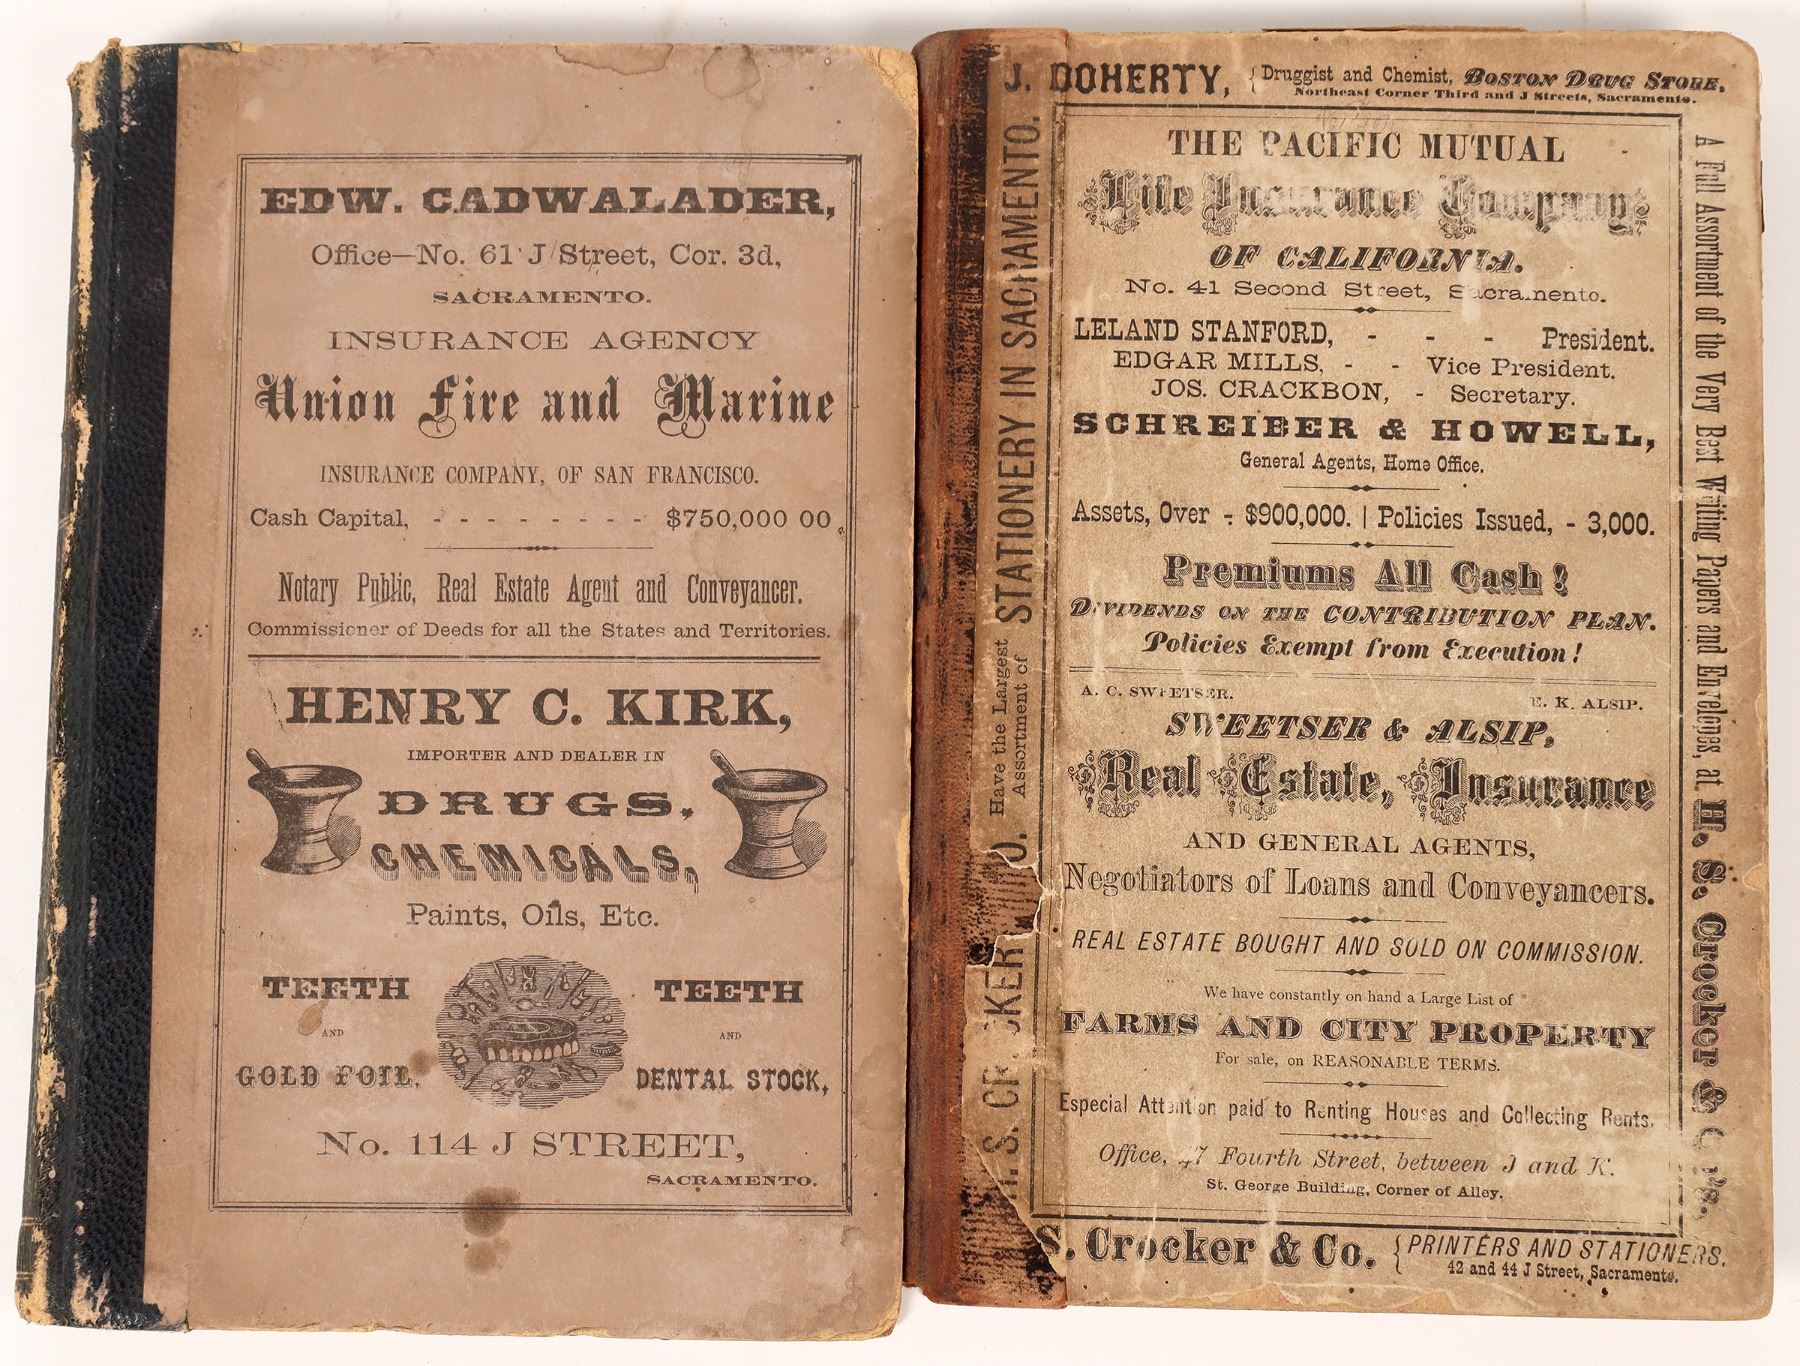 EDW. CADWALADER,
Office—No. 61 J Street, Cor. 3d,
SACRAMENTO.
INSURANCE AGENCY
Union Fire and Marine
INSURANCE COMPANY, OF SAN FRANCISCO.
Cash Capital, - - - - - - - - $750,000 00
Notary Public, Real Estate Agent and Conveyancer.
Commissioner of Deeds for all the States and Territories.
HENRY C. KIRK,
IMPORTER AND DEALER IN
DRUGS,
CHEMICALS,
Paints, Oils, Etc.
TEETH
AND
GOLD FOIL,
TEETH
AND
DENTAL STOCK,
No. 114 J STREET,
SACRAMENTO.
J. DOHERTY, { Druggist and Chemist, BOSTON DRUG STORE,
Northeast Corner Third and J Streets, Sacramento.
THE PACIFIC MUTUAL
Life Insurance Company
OF CALIFORNIA.
No. 41 Second Street, Sacramento.
LELAND STANFORD, - - - President.
EDGAR MILLS, - - Vice President.
JOS. CRACKBON, - Secretary.
SCHREIBER & HOWELL,
General Agents, Home Office.
Assets, Over - $900,000. | Policies Issued, - 3,000.
Premiums All Cash!
DIVIDENDS ON THE CONTRIBUTION PLAN.
Policies Exempt from Execution!
A. C. SWEETSER.
E. K. ALSIP.
SWEETSER & ALSIP,
Real Estate, Insurance
AND GENERAL AGENTS,
Negotiators of Loans and Conveyancers.
REAL ESTATE BOUGHT AND SOLD ON COMMISSION.
We have constantly on hand a Large List of
FARMS AND CITY PROPERTY
For sale, on REASONABLE TERMS.
Especial Attention paid to Renting Houses and Collecting Rents.
Office, 47 Fourth Street, between J and K.
St. George Building, Corner of Alley.
S. Crocker & Co. { PRINTERS AND STATIONERS,
42 and 44 J Street, Sacramento.
H. S. CROCKER
Have the Largest
Assortment of
STATIONERY IN SACRAMENTO.
A Full Assortment of the Very Best Writing Papers and Envelopes, at H. S. Crocker & Co.'s.